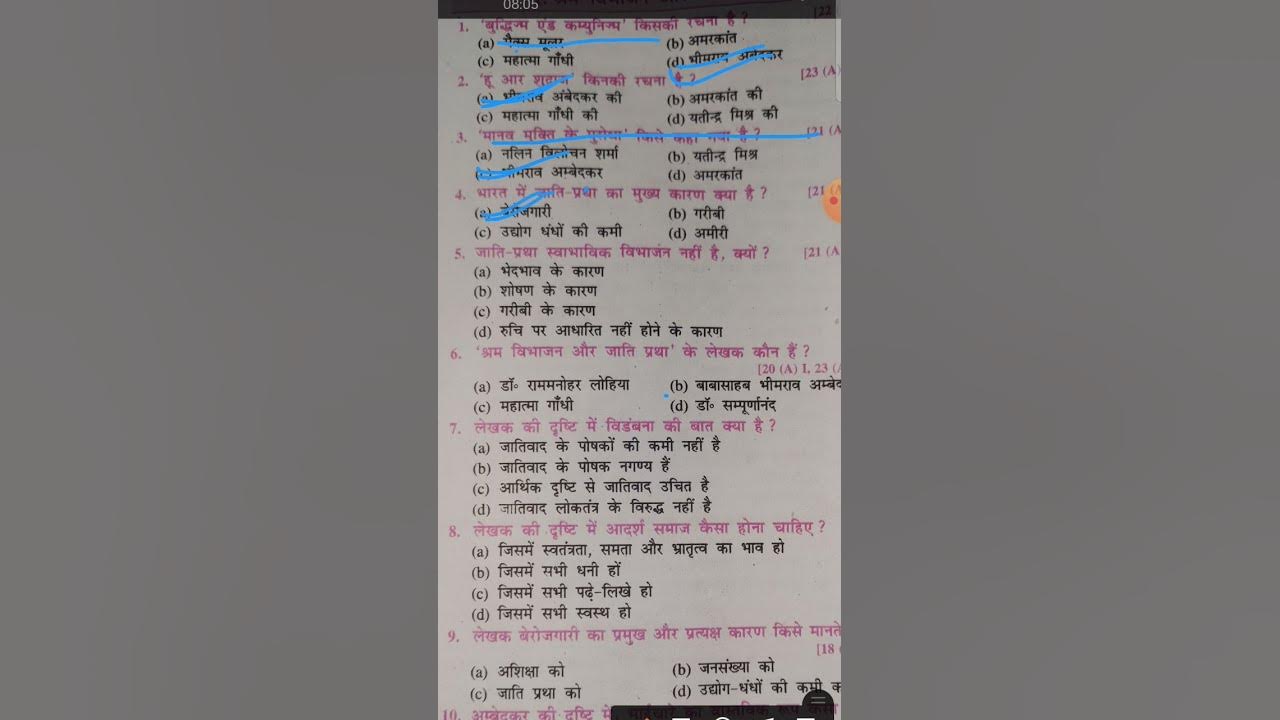 08:05
श्रम विभाजन और
1. 'बुद्धिज्म एंड कम्युनिज्म' किसकी रचना है ? [22
(a) मैक्स मूलर (b) अमरकांत
(c) महात्मा गाँधी (d) भीमराव अंबेदकर
2. 'हू आर शूद्राज' किनकी रचना है ? [23 (A)
(a) भीमराव अंबेदकर की (b) अमरकांत की
(c) महात्मा गाँधी की (d) यतीन्द्र मिश्र की
3. 'मानव मुक्ति के पुरोधा' किसे कहा गया है ? [21 (A
(a) नलिन विलोचन शर्मा (b) यतीन्द्र मिश्र
भीमराव अम्बेदकर (d) अमरकांत
4. भारत में जाति-प्रथा का मुख्य कारण क्या है ? [21 (A
(a) बेरोजगारी (b) गरीबी
(c) उद्योग धंधों की कमी (d) अमीरी
5. जाति-प्रथा स्वाभाविक विभाजन नहीं है, क्यों ? [21 (A
(a) भेदभाव के कारण
(b) शोषण के कारण
(c) गरीबी के कारण
(d) रुचि पर आधारित नहीं होने के कारण
6. 'श्रम विभाजन और जाति प्रथा' के लेखक कौन हैं ?
[20 (A) I, 23 (A
(a) डॉ॰ राममनोहर लोहिया (b) बाबासाहब भीमराव अम्बेद
(c) महात्मा गाँधी (d) डॉ॰ सम्पूर्णानंद
7. लेखक की दृष्टि में विडंबना की बात क्या है ?
(a) जातिवाद के पोषकों की कमी नहीं है
(b) जातिवाद के पोषक नगण्य हैं
(c) आर्थिक दृष्टि से जातिवाद उचित है
(d) जातिवाद लोकतंत्र के विरुद्ध नहीं है
8. लेखक की दृष्टि में आदर्श समाज कैसा होना चाहिए ?
(a) जिसमें स्वतंत्रता, समता और भ्रातृत्व का भाव हो
(b) जिसमें सभी धनी हों
(c) जिसमें सभी पढ़े-लिखे हो
(d) जिसमें सभी स्वस्थ हो
9. लेखक बेरोजगारी का प्रमुख और प्रत्यक्ष कारण किसे मानते
[18
(a) अशिक्षा को (b) जनसंख्या को
(c) जाति प्रथा को (d) उद्योग-धंधों की कमी क
10. अम्बेदकर की दृष्टि में